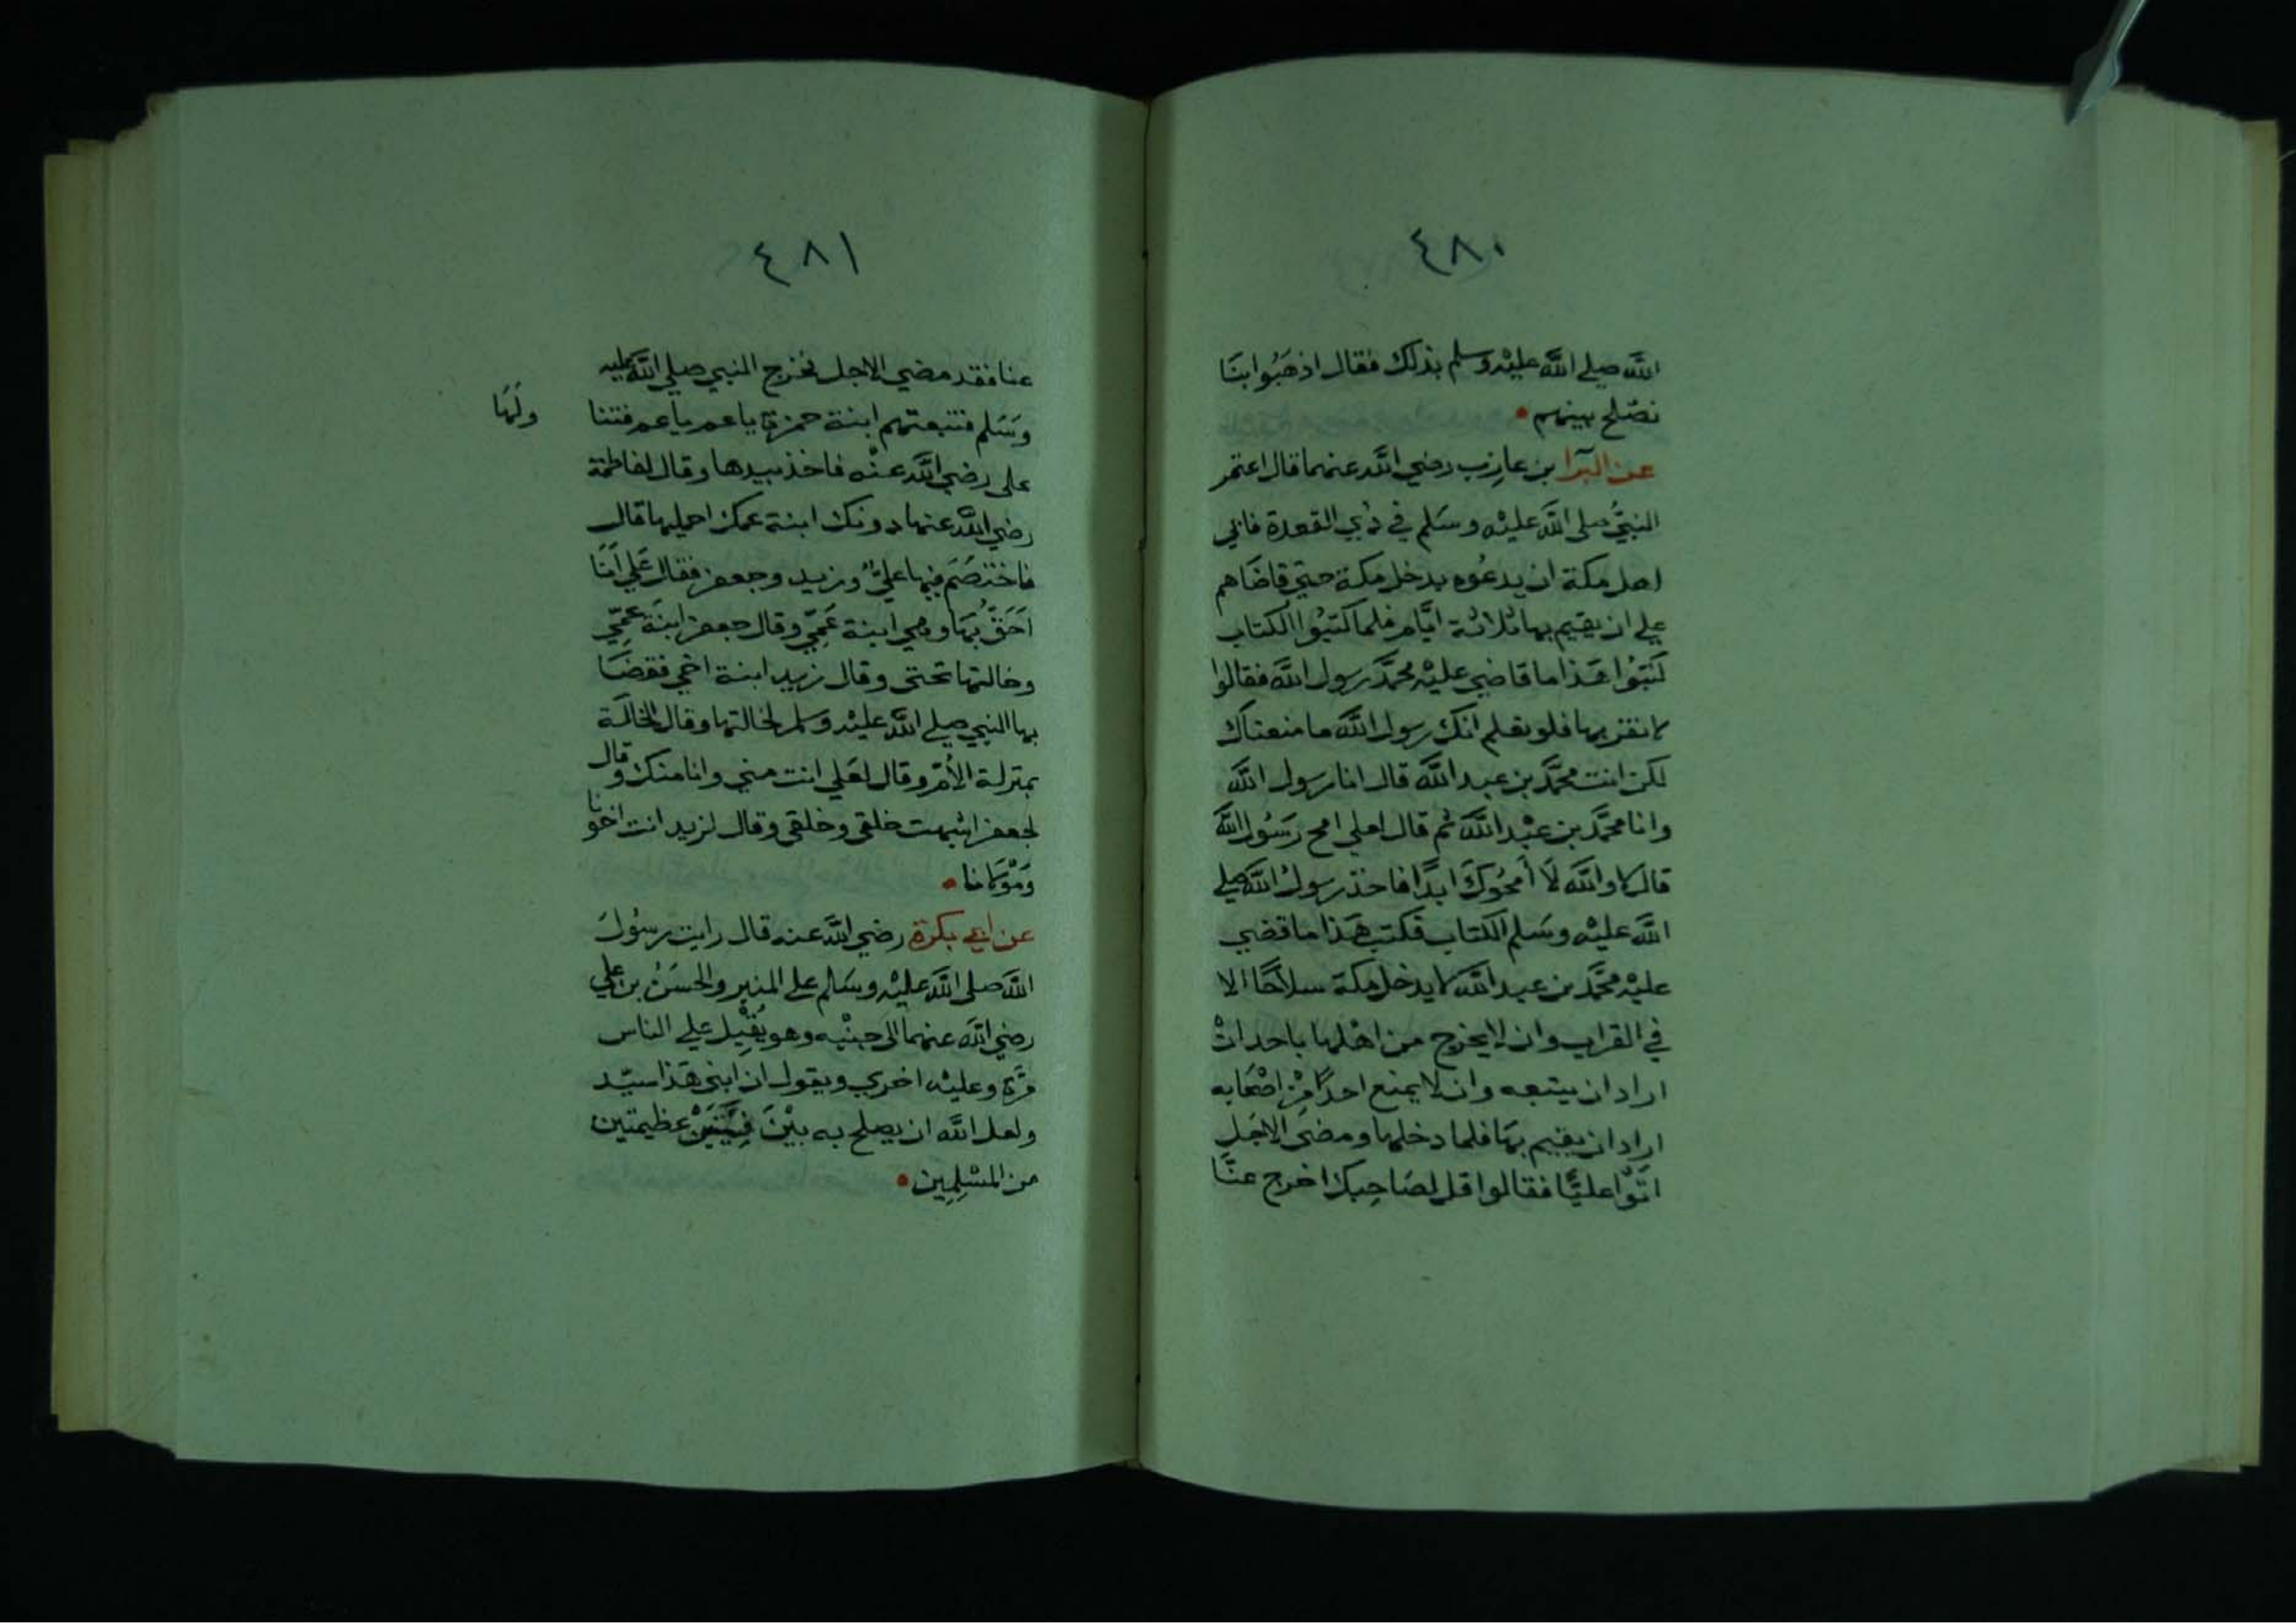 ٤٨٠
الله صلي الله عليه وسلم بذلك فقال اذهبوا بنا
نصلح بينهم
عن البرآ بن عازب رضي الله عنهما قال اعتمر
النبيُّ صلى الله عليه وسلم في ذي القعدة فابي
اهل مكة ان يدعوه يدخل مكة حتي قاضاهم
علي ان يقيم بها ثلاثة ايام فلما كتبوا الكتاب
كتبوا هذا ما قاضي عليه محمد رسول الله فقالوا
لا نقر بها فلو نعلم انك رسول الله ما منعناك
لكن انت محمد بن عبد الله قال انا رسول الله
وانا محمد بن عبد الله ثم قال لعلي امح رسول الله
قال لا والله لا أمحوك ابدًا فاخذ رسول الله صلي
الله عليه وسلم الكتاب فكتب هذا ما قضي
عليه محمد بن عبد الله لا يدخل مكة سلاحًا الا
في القراب وان لا يخرج من اهلها باحد ان
اراد ان يتبعه وان لا يمنع احدًا من اصحابه
اراد ان يقيم بها فلما دخلها ومضى الاجل
اتوا عليًّا فقالوا قل لصاحبك اخرج عنّا
٤٨١
عنا فقد مضي الاجل فخرج النبي صلي الله عليه
وسلم فتبعتهم ابنة حمزة يا عم يا عم فتنا ولها
على رضي الله عنه فاخذ بيدها وقال لفاطمة
رضي الله عنها دونك ابنة عمك احمليها قال
فاختصم فيها عليٌّ وزيد وجعفر فقال علي انا
احقّ بها وهي ابنة عمّي وقال جعفر ابنة عمّي
وخالتها تحتى وقال زيد ابنة اخي فقضا
بها النبي صلي الله عليه وسلم لخالتها وقال الخالة
بمنزلة الأمّ وقال لعلي انت مني وانا منك وقال
لجعفر اشبهت خلقي وخلقي وقال لزيد انت اخونا
ومولانا
عن ابي بكرة رضي الله عنه قال رايت رسول
الله صلى الله عليه وسلم علي المنبر والحسن بن علي
رضي الله عنهما الى جنبه وهو يقبل علي الناس
مرة وعليه اخري ويقول ان ابني هذا سيّد
ولعل الله ان يصلح به بين فئتين عظيمتين
من المسلمين